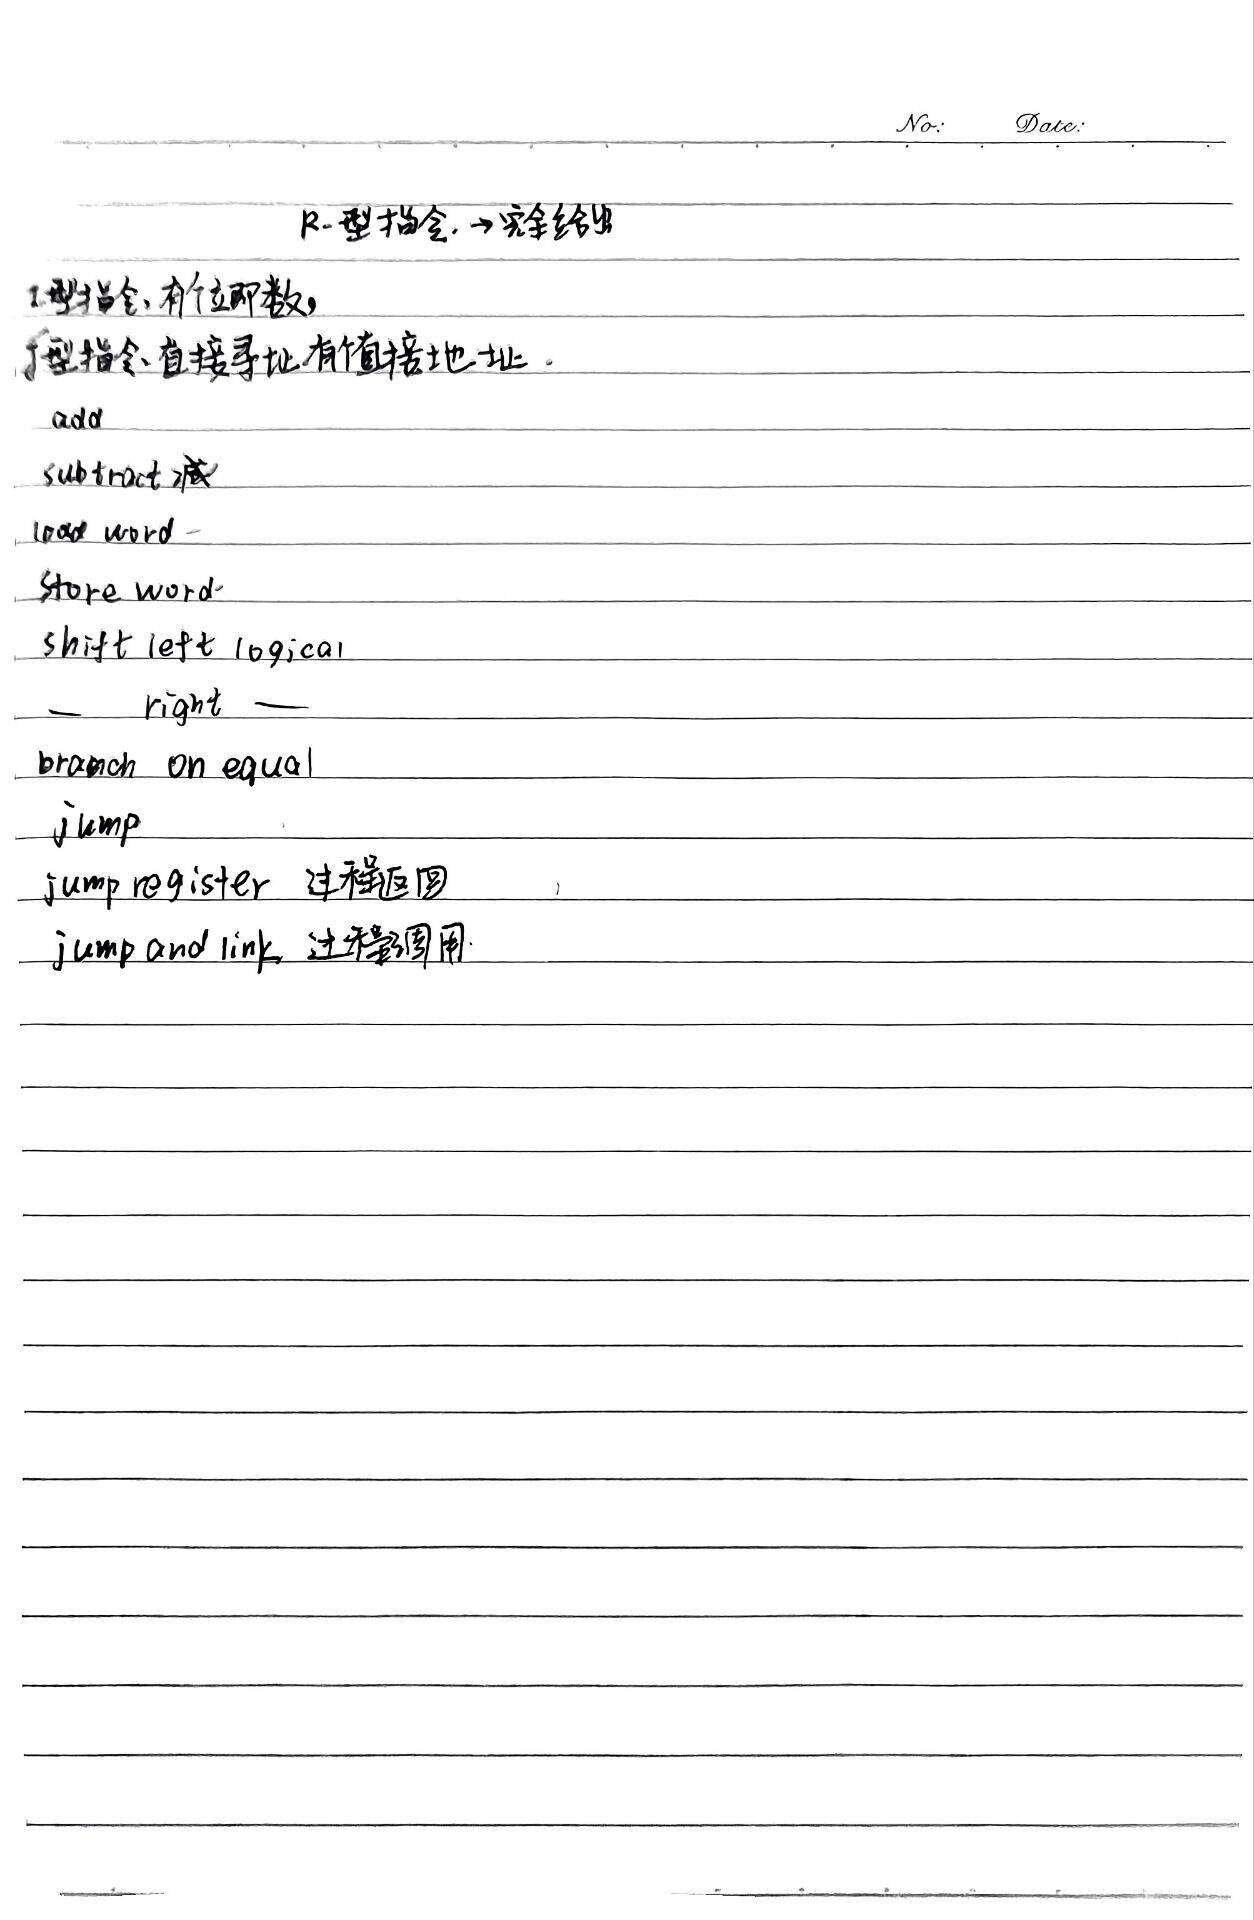 No: Date:
R-型指令.→完全给出
I型指令、有个立即数,
J型指令、直接寻址有个直接地址.
add
subtract 减
load word -
store word-
shift left logical
— right —
branch on equal
jump
jump register 过程返回
jump and link, 过程调用.